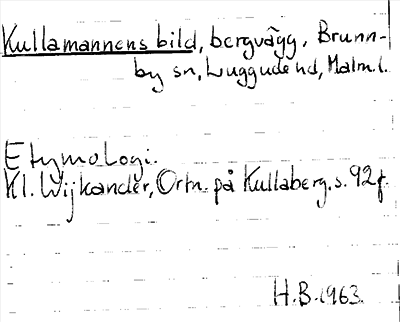 Kullamannens bild, bergvägg, Brunn-
by sn, Luggude hd, Malm.l.
Etymologi.
Kl. Wijkander, Ortn. på Kullaberg. s. 92f.
H.B. 1963.